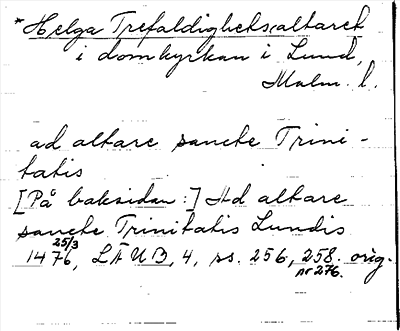 *Helga Trefaldighets(altaret
i domkyrkan i Lund,
Malm. l.
ad altare sancte Trini-
tatis
[På baksidan:] Ad altare
sancte Trinitatis Lundis
1476 25/3, LÄUB, 4, ss. 256, 258. orig.
nr 276.